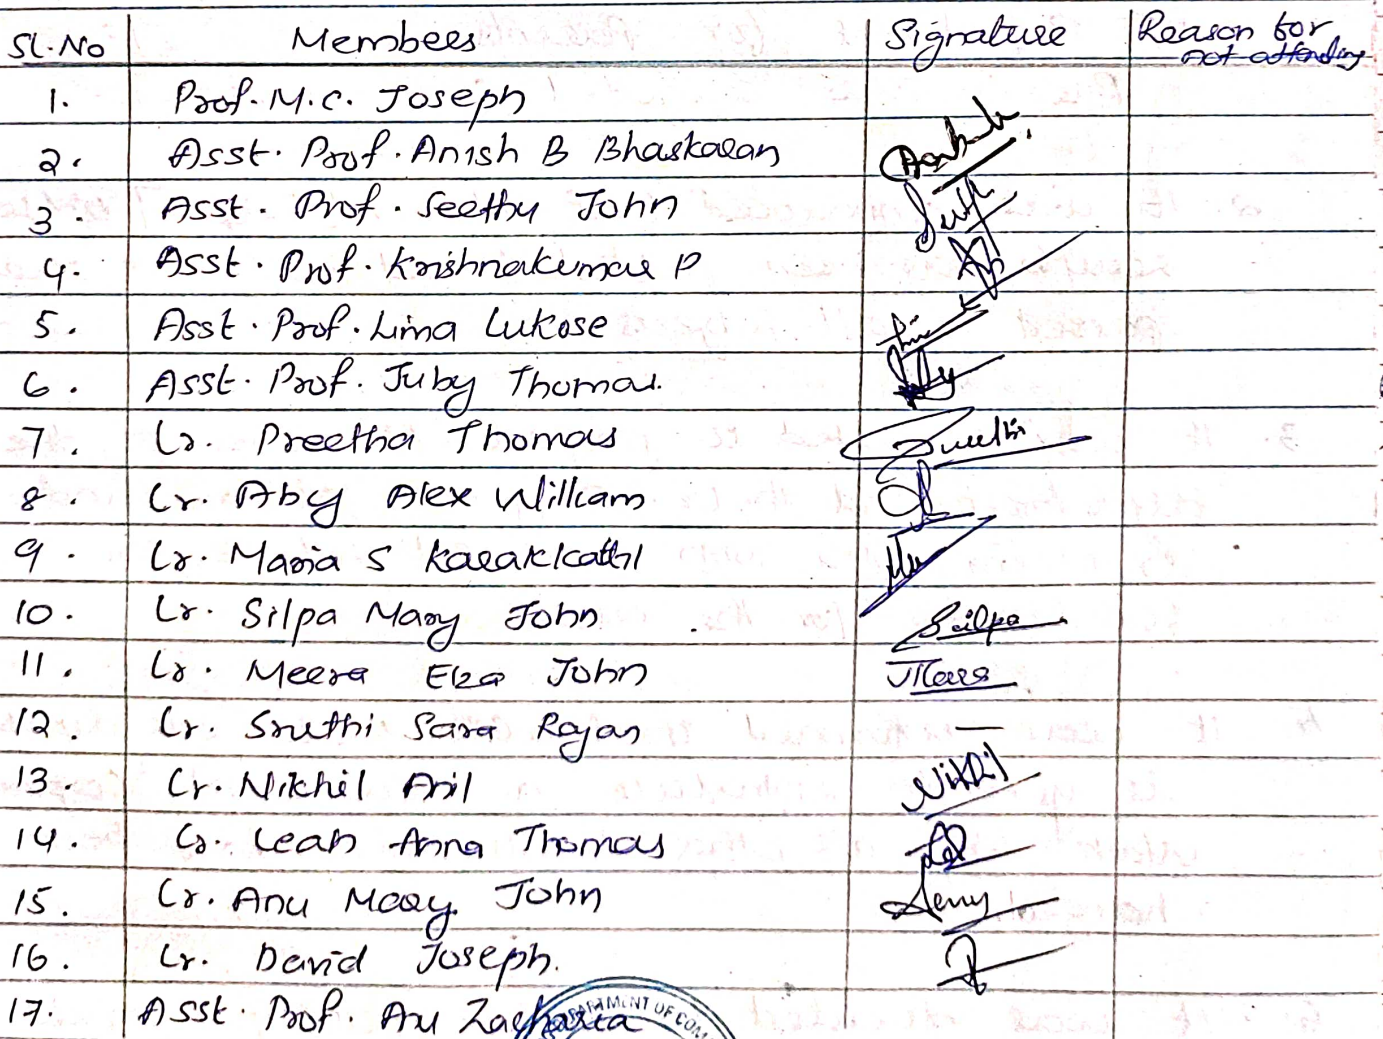 Sl.No Members Signature Reason for
not attending
1. Prof. M.C. Joseph
2. Asst. Prof. Anish B Bhaskaran
3. Asst. Prof. Seethu John
4. Asst. Prof. Krishnakumar P
5. Asst. Prof. Lima Lukose
6. Asst. Prof. Juby Thomas.
7. Lr. Preetha Thomas
8. Lr. Aby Alex William
9. Lr. Maria S Karakkattil
10. Lr. Silpa Mary John Silpa
11. Lr. Meera Elza John
12. Lr. Sruthi Sara Rajan —
13. Lr. Nikhil Anil Nikhil
14. Lr. Leah Anna Thomas
15. Lr. Anu Mary John
16. Lr. David Joseph.
17. Asst. Prof. Anu Zacharia
DEPARTMENT OF COM